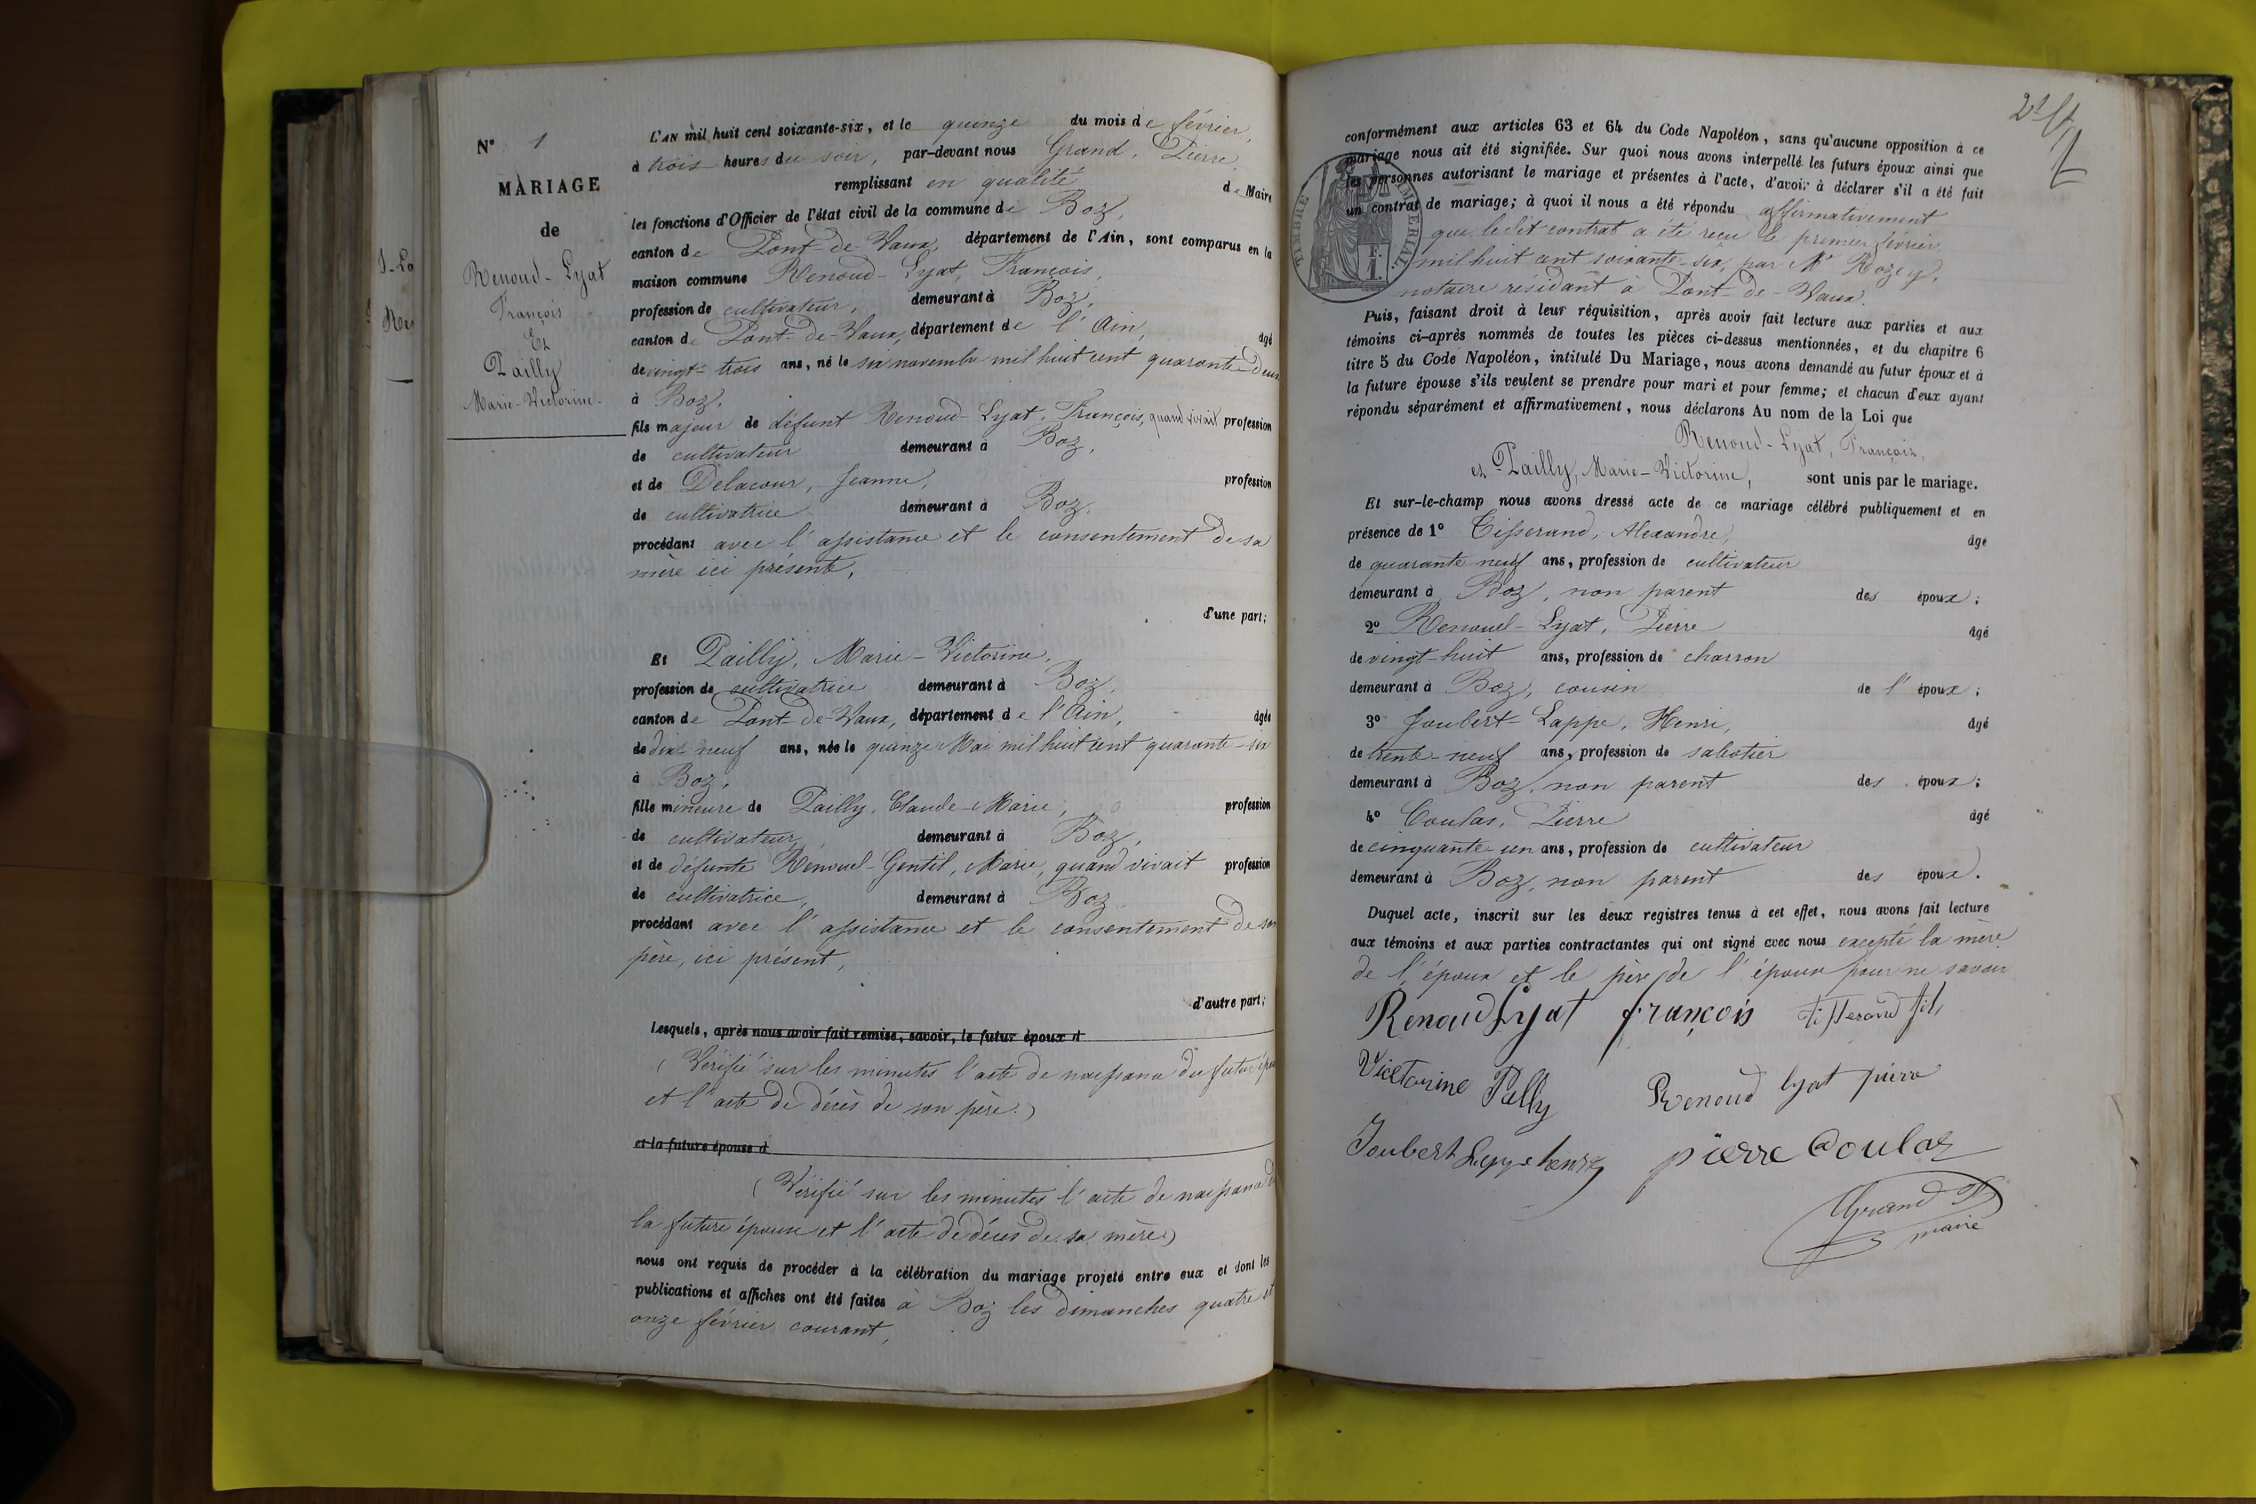 N° 1
MARIAGE
de
Renoud-Lyat
François
Et
Pailly
Marie-Victorine.
L'AN mil huit cent soixante-six, et le quinze du mois de février,
à trois heures du soir, par-devant nous Grand, Pierre,
remplissant en qualité de Maire
les fonctions d'Officier de l'état civil de la commune de Boz,
canton de Pont-de-Vaux, département de l'Ain, sont comparus en la
maison commune Renoud-Lyat, François,
profession de cultivateur, demeurant à Boz,
canton de Pont-de-Vaux, département de l'Ain, âgé
de vingt-trois ans, né le six novembre mil huit cent quarante-deux
à Boz.
fils majeur de défunt Renoud-Lyat, François, quand vivait profession
de cultivateur demeurant à Boz,
et de Delacour, Jeanne, profession
de cultivatrice demeurant à Boz.
procédant avec l'assistance et le consentement de sa
mère ici présente,
d'une part;
Et Pailly, Marie-Victorine,
profession de cultivatrice demeurant à Boz,
canton de Pont-de-Vaux, département de l'Ain, âgée
de dix-neuf ans, née le quinze Mai mil huit cent quarante-six
à Boz,
fille mineure de Pailly, Claude-Marie, profession
de cultivateur, demeurant à Boz,
et de défunte Renoud-Gentil, Marie, quand vivait profession
de cultivatrice, demeurant à Boz
procédant avec l'assistance et le consentement de son
père, ici présent,
d'autre part;
Lesquels, après nous avoir fait remise, savoir, le futur époux d
(Vérifié sur les minutes l'acte de naissance du futur époux
et l'acte de décès de son père.)
et la future épouse d
(Vérifié sur les minutes l'acte de naissance de
la future épouse et l'acte de décès de sa mère)
nous ont requis de procéder à la célébration du mariage projeté entre eux et dont les
publications et affiches ont été faites à Boz les dimanches quatre et
onze février courant,
conformément aux articles 63 et 64 du Code Napoléon, sans qu'aucune opposition à ce
mariage nous ait été signifiée. Sur quoi nous avons interpellé les futurs époux ainsi que
les personnes autorisant le mariage et présentes à l'acte, d'avoir à déclarer s'il a été fait
un contrat de mariage; à quoi il nous a été répondu affirmativement
que ledit contrat a été reçu le premier février
mil huit cent soixante-six, par Me Rozey,
notaire résidant à Pont-de-Vaux.
TIMBRE IMPERIAL
1 F.
Puis, faisant droit à leur réquisition, après avoir fait lecture aux parties et aux
témoins ci-après nommés de toutes les pièces ci-dessus mentionnées, et du chapitre 6
titre 5 du Code Napoléon, intitulé Du Mariage, nous avons demandé au futur époux et à
la future épouse s'ils veulent se prendre pour mari et pour femme; et chacun d'eux ayant
répondu séparément et affirmativement, nous déclarons Au nom de la Loi que
Renoud-Lyat, François,
et Pailly, Marie-Victorine, sont unis par le mariage.
Et sur-le-champ nous avons dressé acte de ce mariage célébré publiquement et en
présence de 1° Tisserand, Alexandre, âgé
de quarante neuf ans, profession de cultivateur
demeurant à Boz, non parent des époux;
2° Renoud-Lyat, Pierre âgé
de vingt-huit ans, profession de charron
demeurant à Boz, cousin de l'époux;
3° Joubert-Lappe, Henri, âgé
de trente-neuf ans, profession de sabotier
demeurant à Boz, non parent des époux;
4° Coulas, Pierre âgé
de cinquante-un ans, profession de cultivateur
demeurant à Boz, non parent des époux.
Duquel acte, inscrit sur les deux registres tenus à cet effet, nous avons fait lecture
aux témoins et aux parties contractantes qui ont signé avec nous excepté la mère
de l'époux et le père de l'épouse pour ne savoir
Renoud Lyat françois tisserand fils
Victorine Pally Renoud lyat pierre
Joubert Lappe henri pierre Coulas
Grand P
maire